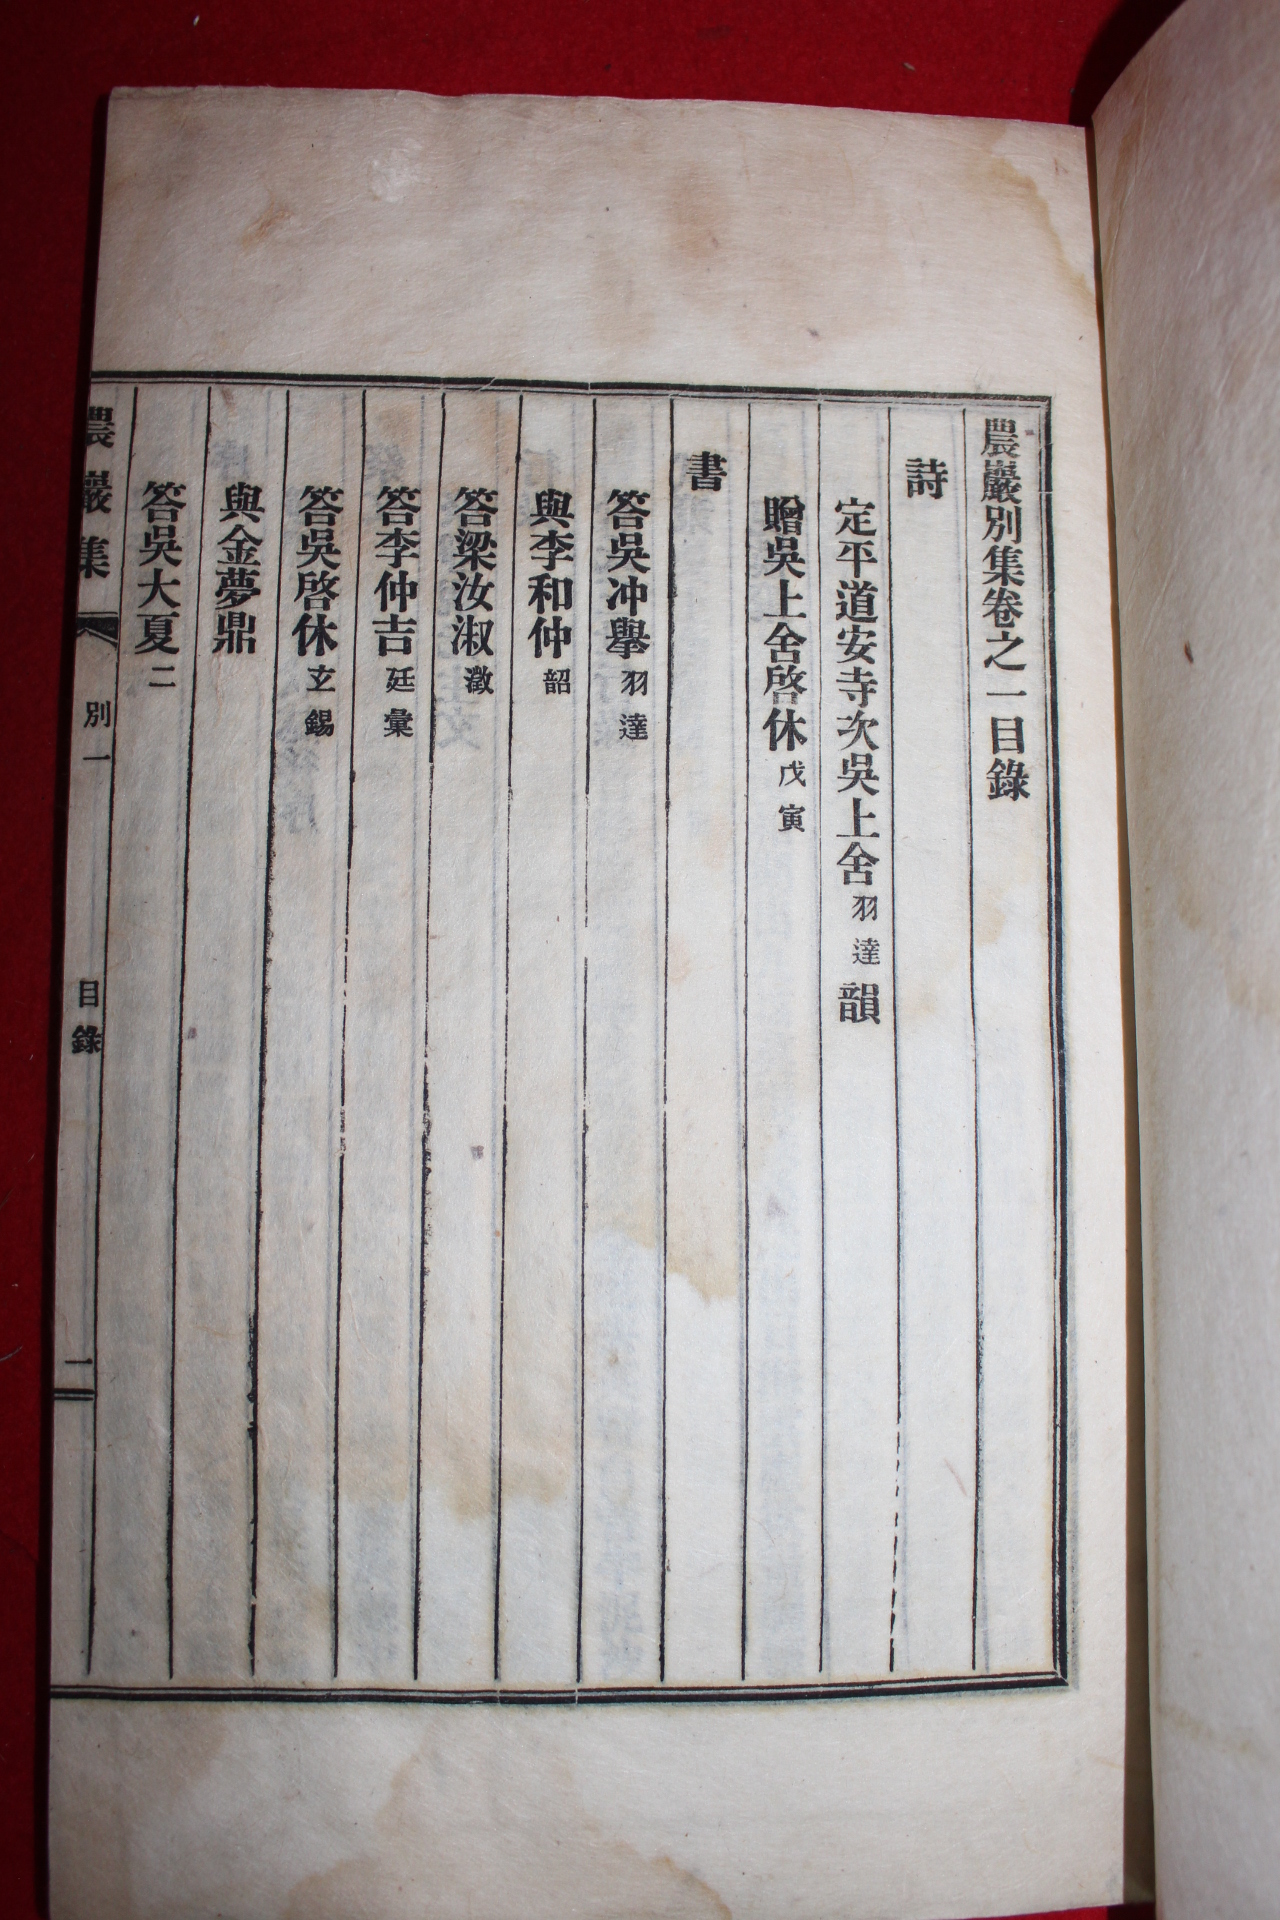 農巖別集卷之一目錄
詩
定平道安寺次吳上舍羽達韻
贈吳上舍啓休戊寅
書
答吳冲擧羽達
與李和仲韶
答梁汝淑瀓
答李仲吉廷彙
答吳啓休玄錫
與金夢鼎
答吳大夏二
農巖集 別一 目錄 一